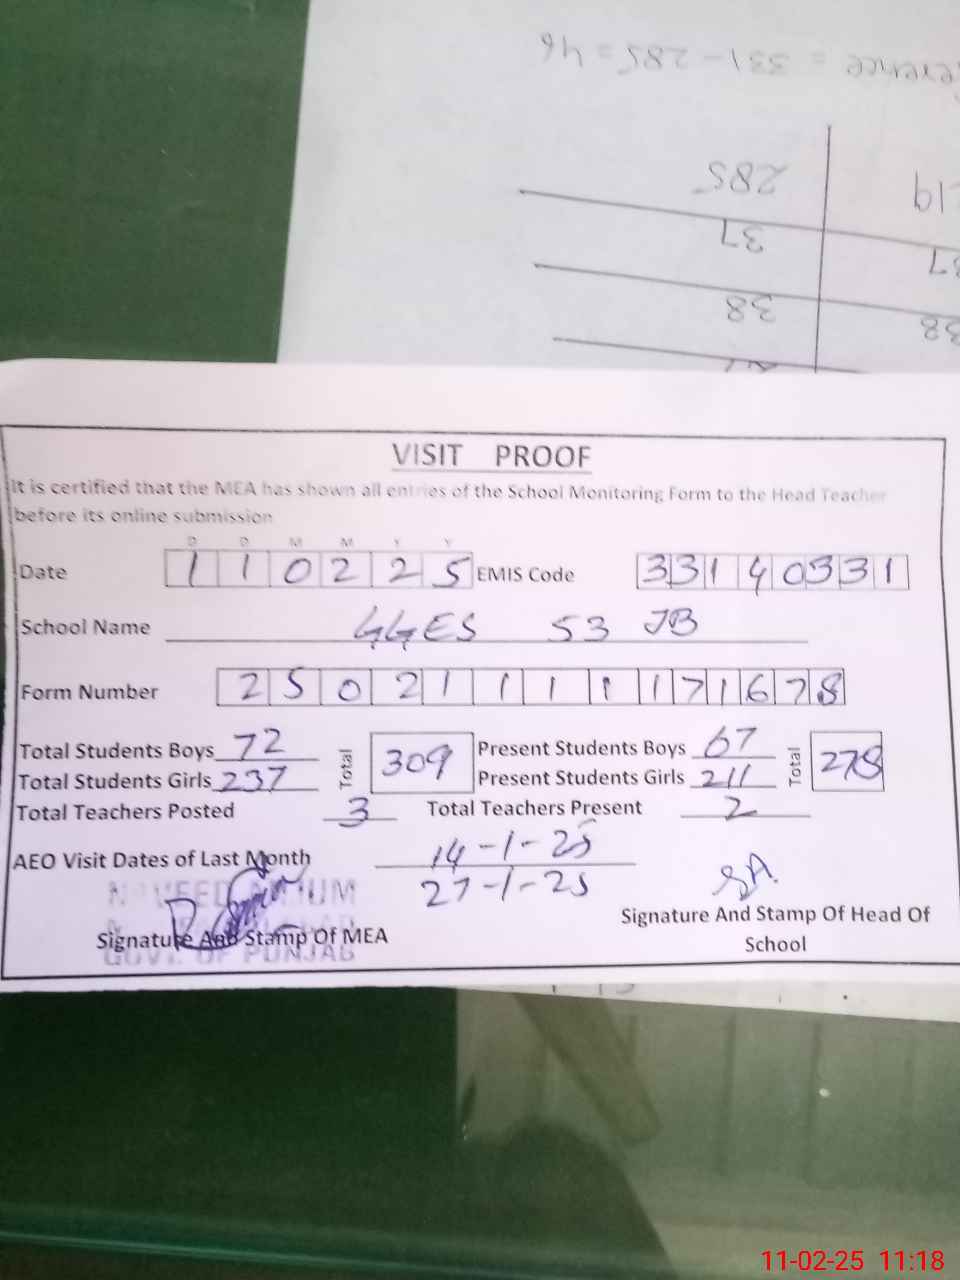 erence = 331-285 = 46
219 285
37 37
38 38
VISIT PROOF
It is certified that the MEA has shown all entries of the School Monitoring Form to the Head Teacher
before its online submission
D D M M Y Y
Date 110225 EMIS Code 33140331
School Name GGES 53 JB
Form Number 25021111171678
Total Students Boys 72 Total 309 Present Students Boys 67 Total 278
Total Students Girls 237 Present Students Girls 211
Total Teachers Posted 3 Total Teachers Present 2
AEO Visit Dates of Last Month 14-1-25
27-1-25
SA
Signature And Stamp Of MEA Signature And Stamp Of Head Of
School
GOVT. OF PUNJAB
11-02-25 11:18